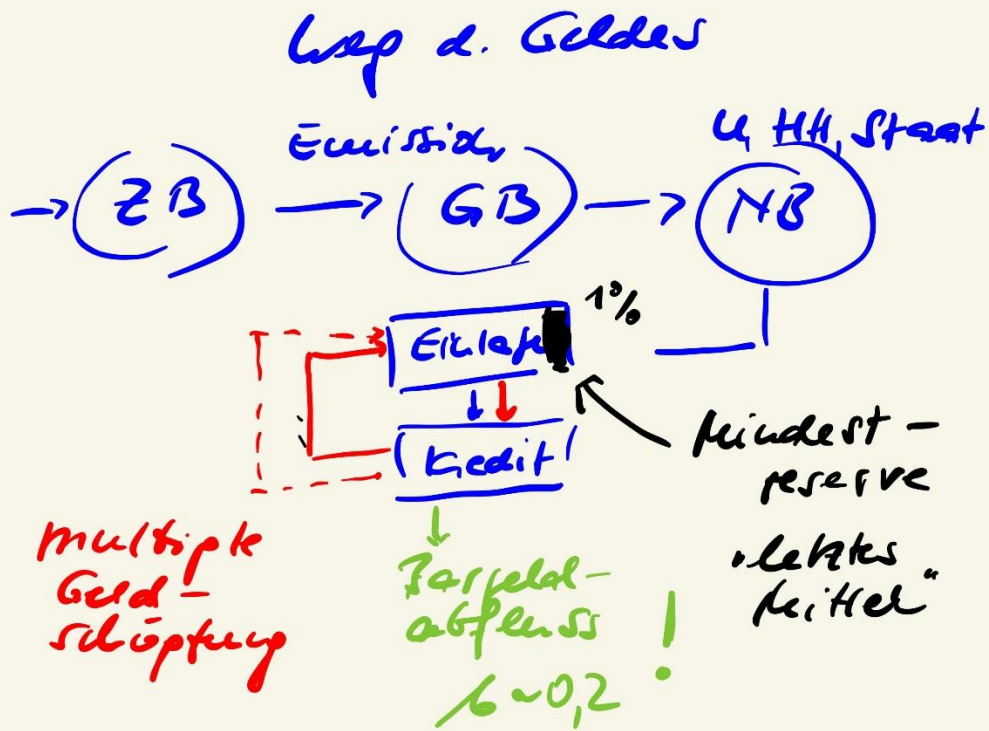 Weg d. Geldes
Emission
U, HH, Staat
ZB
GB
NB
1%
Einlage
Kredit
Mindest-
reserve
"letztes
Mittel"
multiple
Geld-
schöpfung
Bargeld-
abfluss
b ~ 0,2 !